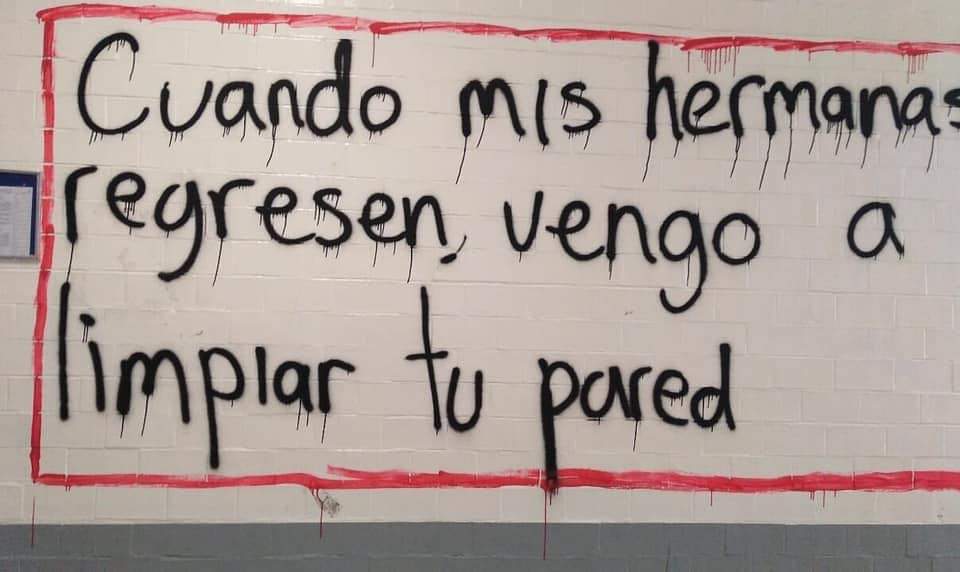 Cuando mis hermanas
regresen, vengo a
limpiar tu pared